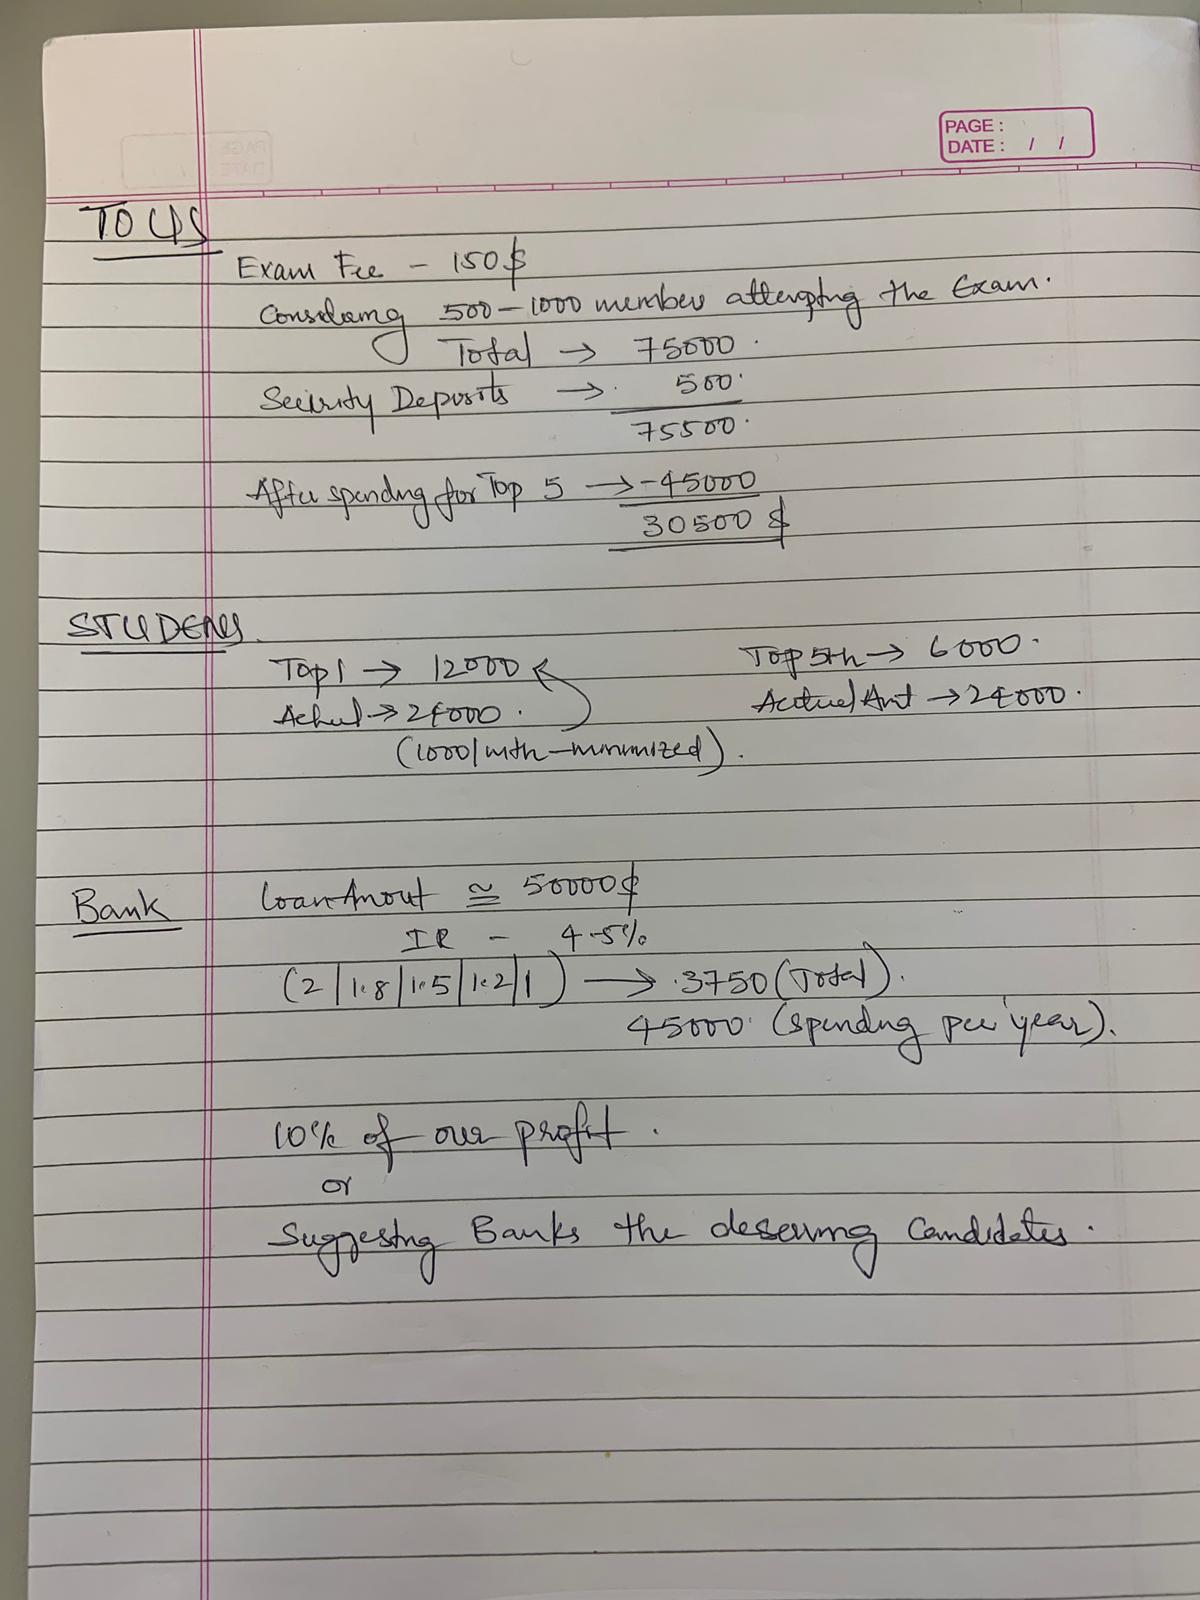 PAGE :
DATE : / /
TO US
Exam Fee - 150$
Considering 500-1000 members attempting the Exam.
Total → 75000
Security Deposits → 500
75500
After spending for Top 5 → -45000
30500 $
STUDENTS
Top 1 → 12000 Top 5th → 6000
Actual → 24000 Actual Amt → 24000
(1000/mth-minimized).
Bank Loan Amout ≅ 50000$
IR - 4.5%
(2|1.8|1.5|1.2|1) → 3750 (Total).
45000 (spending per year).
10% of our profit.
or
Suggesting Banks the deserving Candidates.